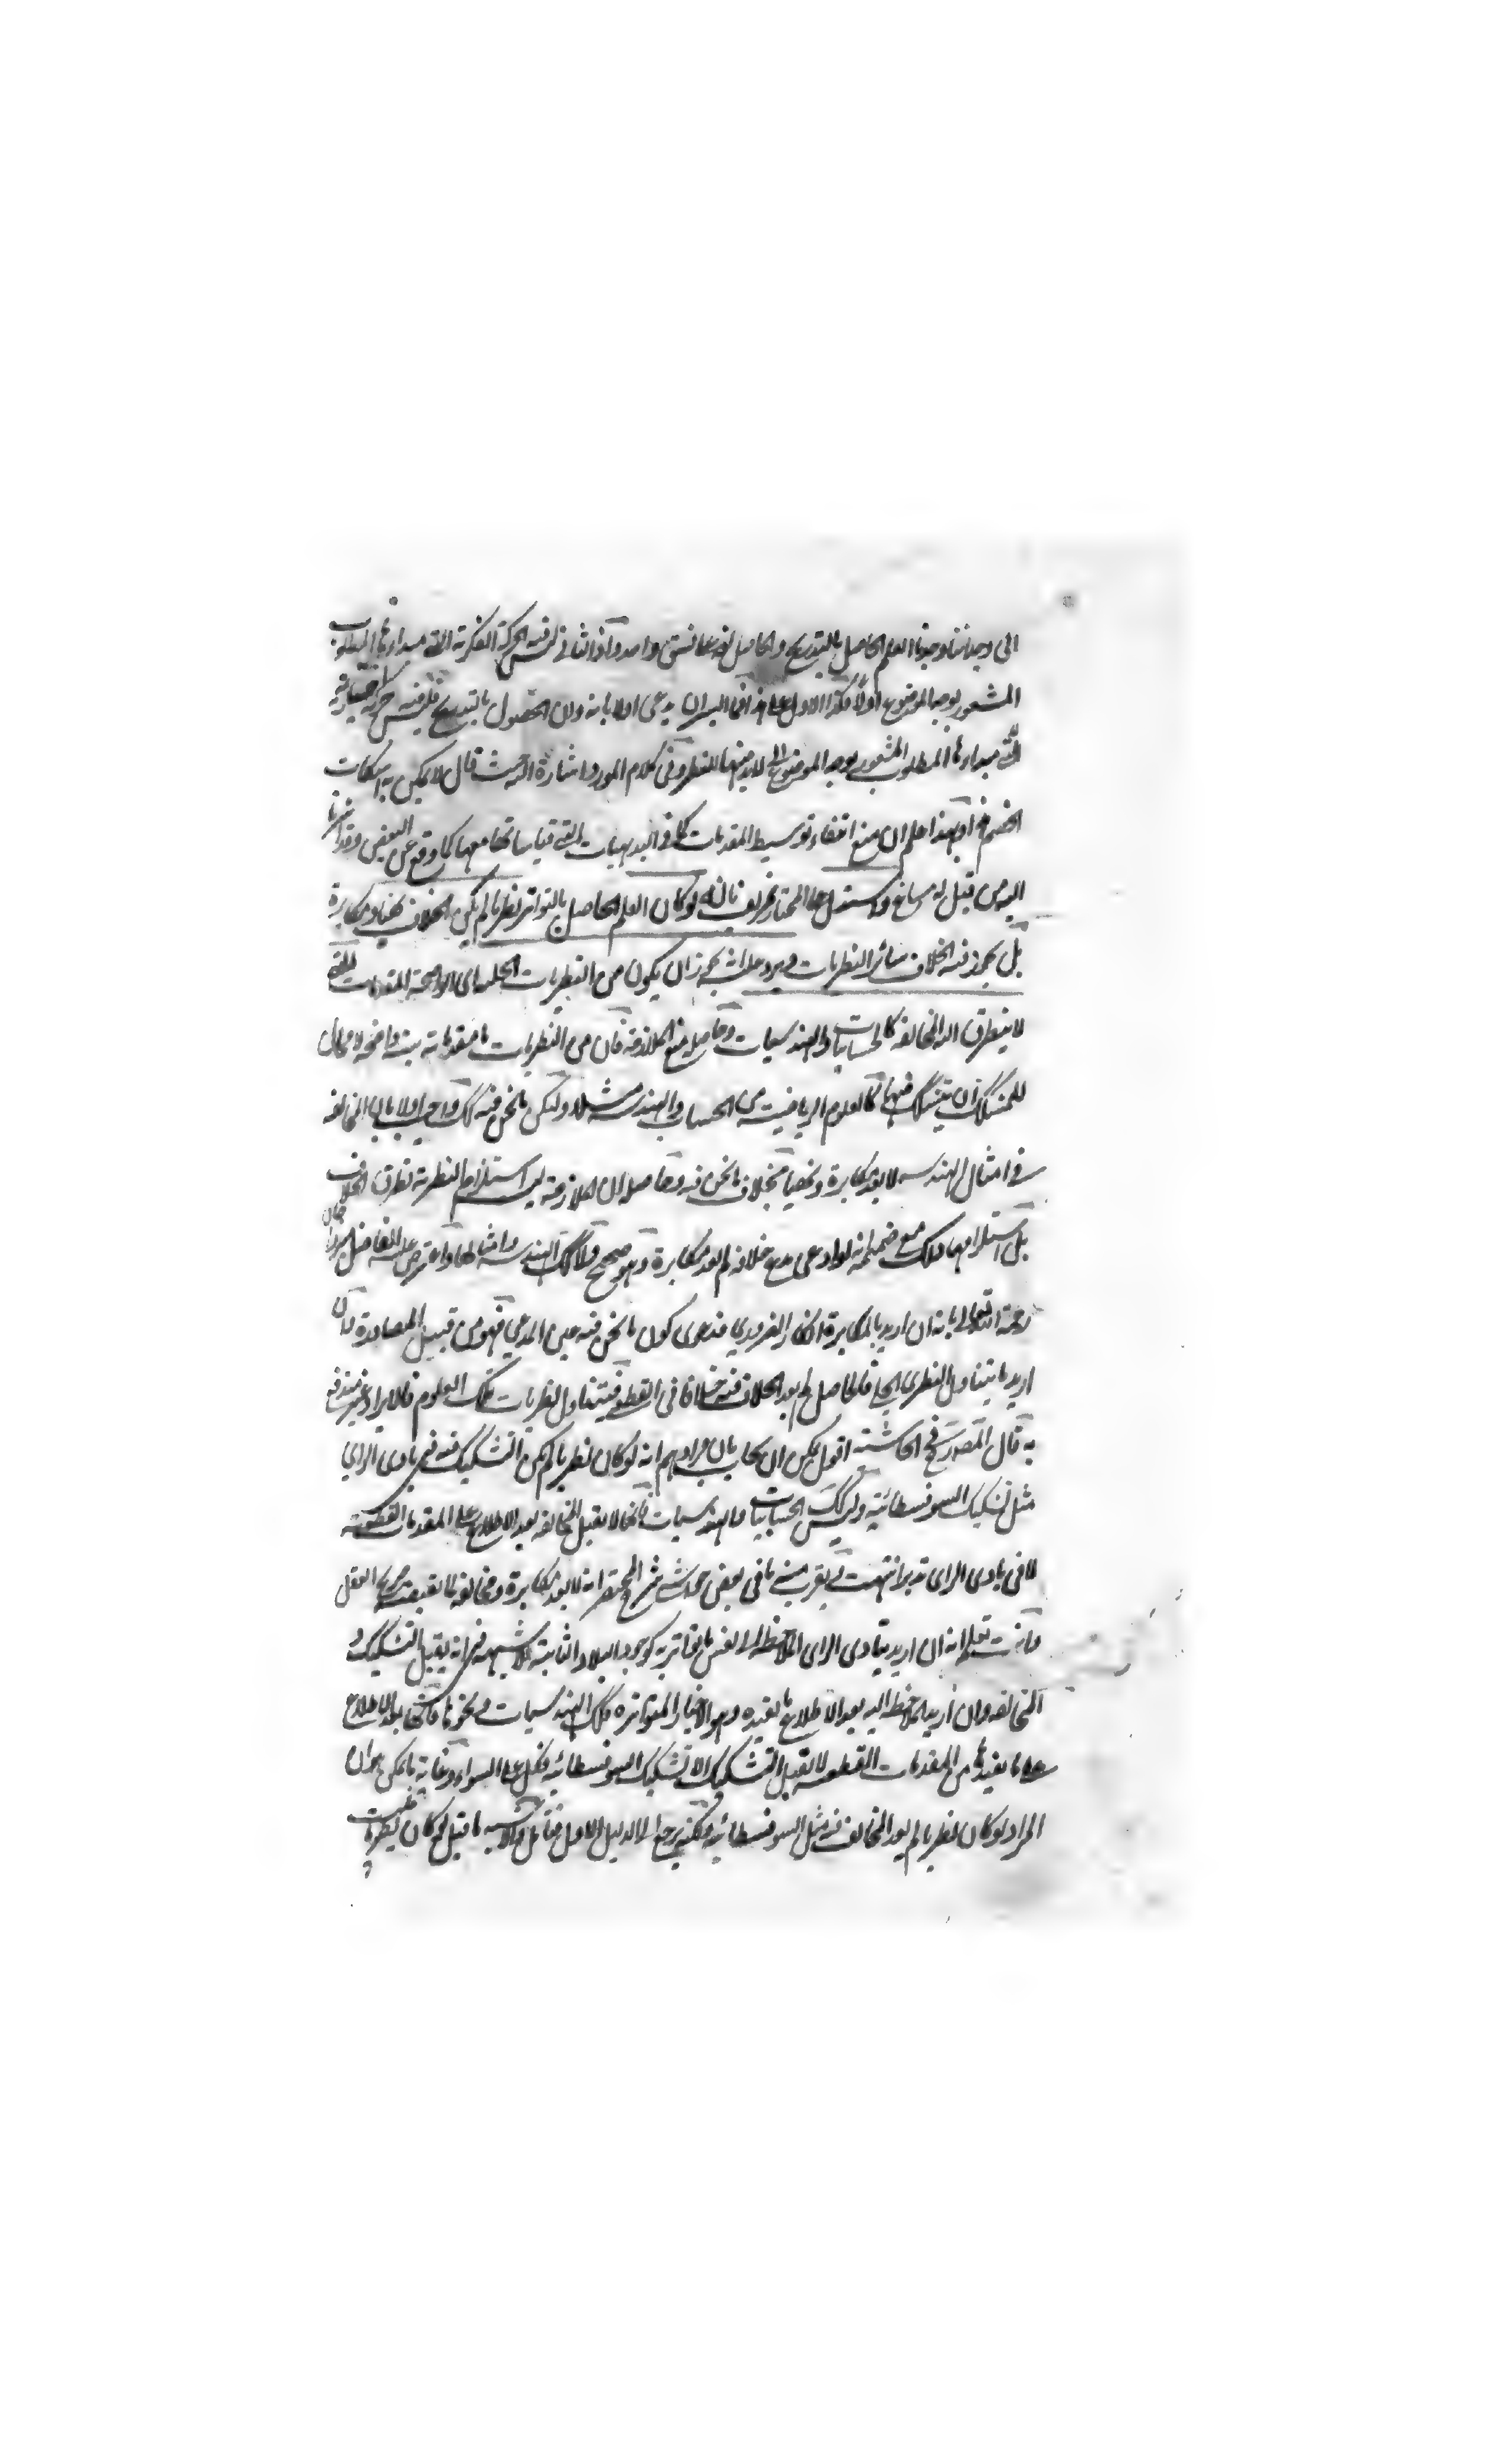 الى وجداننا وجدنا العلم الحاصل بالتدريج والحاصل دفعة على نسق واحد وآذا الثانى ليس فيه الحركة الفكرية التى مبدأها المطلوب
المشعور بوجه الموضوع اولا فكذا الاول على هذا فما اليسران يدعى اولا بانه وان الحصول بالتدريج فليس فيه حركة اختيارية
التى مبدأها المطلوب المشعور بوجه الموضوع الى لابد منها للنظر وفى كلام المورد اشارة اليه حيث قال لا يمكن به اسكات
الخصم فح وبهذا علم ان منع انتفاء توسيط المقدمات كما فى البديهيات التى قياساتها معها كما وقع عن البعض وقد اشرنا
اليه من قبل له مساغ واستدل على المختار بانه لو كان العلم الحاصل بالتواتر نظريا لم يكن الخلاف بهتا ومكابرة
بل يجوز فيه الخلاف سائر النظريات ويرد عليه انه يجوز ان يكون من النظريات الجلية اى الواضحة المقدمات التى
لا يتطرق اليه المخالفة كالحسابيات والهندسيات وحاصله منع الملازمة فان من النظريات ما مقدماته بينة واضحة لا مجال
للمشكك ان يتشكك فيها كالعلوم الرياضية من الحساب والهندسة مثلا وليكن ما نحن فيه كك واجيب اولا بان المخالفة
فى امثال الهندسة لا يعد مكابرة وبهتا بخلاف ما نحن فيه وحاصله ان الملازمة ليس استلزام النظرية تطرق الخلاف
بل استلزامها ذلك مع ضميمة انه لو ادعى مدع خلافه لم يعد مكابرة وهو صحيح ولا كك الهندسة وامثالها واعترض عليه الفاضل ميرزا جان
رحمة الله تعالى بانه ان اريد بالمكابرة انكار الضروري فدعوى كون ما نحن فيه عين المدعى فهو من قبيل المصادرة وان
اريد ما يتناول النظرى الجلى فالحاصل لم يعد الخلاف فيه خلافا فى القطعى فيتناول نظريات تلك العلوم فالايراد غير مندفع
به قال المصور فى الحاشية اقول يمكن ان يجاب بان مرادهم انه لو كان نظريا لم يكن التشكيك فيه فى بادى الراى
مثل تشكيك السوفسطائية وليس كك الحسابيات والهندسيات فانها لا يقبل المخالفة بعد الاطلاع على المقدمات القطعية
لا فى بادى الراى تدبر انتهت و يقرب منه ما فى بعض حواشى شرح المختصر انه لا يعد مكابرة ومخالفة لما يقبضه صريح العقل
وانت تعلم انه ان اريد بادى الراى الملاحظة الى نفس ما تواتر به كوجود البلاد النائية فلا شبهة فى انه يقبل التشكيك و
المخالفة وان اريد الملاحظة اليه بعد الاطلاع ما يفيده وهو الاخبار المتواترة فكك الهندسيات ونحوها فانها بعد الاطلاع
على ما يفيدها من المقدمات القطعية لا تقبل التشكيك الا تشكيك السوفسطائية فكل على السواء وغاية ما يمكن به ان
المراد لو كان نظريا لم يعد المخالف فيه مثل السوفسطائية ولكنه يرجع الى الدليل الاول فتأمل والاشبه ما قيل لو كان نظريا